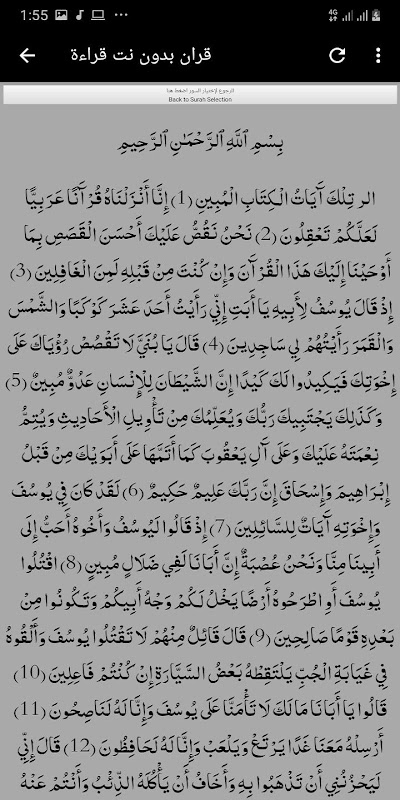 1:55
4G
قران بدون نت قراءة
للرجوع لإختيار السور اضغط هنا
Back to Surah Selection
بِسْمِ اللَّهِ الرَّحْمَٰنِ الرَّحِيمِ
الر تِلْكَ آيَاتُ الْكِتَابِ الْمُبِينِ (1) إِنَّا أَنْزَلْنَاهُ قُرْآنًا عَرَبِيًّا
لَعَلَّكُمْ تَعْقِلُونَ (2) نَحْنُ نَقُصُّ عَلَيْكَ أَحْسَنَ الْقَصَصِ بِمَا
أَوْحَيْنَا إِلَيْكَ هَذَا الْقُرْآنَ وَإِنْ كُنْتَ مِنْ قَبْلِهِ لَمِنَ الْغَافِلِينَ (3)
إِذْ قَالَ يُوسُفُ لِأَبِيهِ يَا أَبَتِ إِنِّي رَأَيْتُ أَحَدَ عَشَرَ كَوْكَبًا وَالشَّمْسَ
وَالْقَمَرَ رَأَيْتُهُمْ لِي سَاجِدِينَ (4) قَالَ يَا بُنَيَّ لَا تَقْصُصْ رُؤْيَاكَ عَلَى
إِخْوَتِكَ فَيَكِيدُوا لَكَ كَيْدًا إِنَّ الشَّيْطَانَ لِلْإِنْسَانِ عَدُوٌّ مُبِينٌ (5)
وَكَذَلِكَ يَجْتَبِيكَ رَبُّكَ وَيُعَلِّمُكَ مِنْ تَأْوِيلِ الْأَحَادِيثِ وَيُتِمُّ
نِعْمَتَهُ عَلَيْكَ وَعَلَى آلِ يَعْقُوبَ كَمَا أَتَمَّهَا عَلَى أَبَوَيْكَ مِنْ قَبْلُ
إِبْرَاهِيمَ وَإِسْحَاقَ إِنَّ رَبَّكَ عَلِيمٌ حَكِيمٌ (6) لَقَدْ كَانَ فِي يُوسُفَ
وَإِخْوَتِهِ آيَاتٌ لِلسَّائِلِينَ (7) إِذْ قَالُوا لَيُوسُفُ وَأَخُوهُ أَحَبُّ إِلَى
أَبِينَا مِنَّا وَنَحْنُ عُصْبَةٌ إِنَّ أَبَانَا لَفِي ضَلَالٍ مُبِينٍ (8) اقْتُلُوا
يُوسُفَ أَوِ اطْرَحُوهُ أَرْضًا يَخْلُ لَكُمْ وَجْهُ أَبِيكُمْ وَتَكُونُوا مِنْ
بَعْدِهِ قَوْمًا صَالِحِينَ (9) قَالَ قَائِلٌ مِنْهُمْ لَا تَقْتُلُوا يُوسُفَ وَأَلْقُوهُ
فِي غَيَابَةِ الْجُبِّ يَلْتَقِطْهُ بَعْضُ السَّيَّارَةِ إِنْ كُنْتُمْ فَاعِلِينَ (10)
قَالُوا يَا أَبَانَا مَا لَكَ لَا تَأْمَنَّا عَلَى يُوسُفَ وَإِنَّا لَهُ لَنَاصِحُونَ (11)
أَرْسِلْهُ مَعَنَا غَدًا يَرْتَعْ وَيَلْعَبْ وَإِنَّا لَهُ لَحَافِظُونَ (12) قَالَ إِنِّي
لَيَحْزُنُنِي أَنْ تَذْهَبُوا بِهِ وَأَخَافُ أَنْ يَأْكُلَهُ الذِّئْبُ وَأَنْتُمْ عَنْهُ